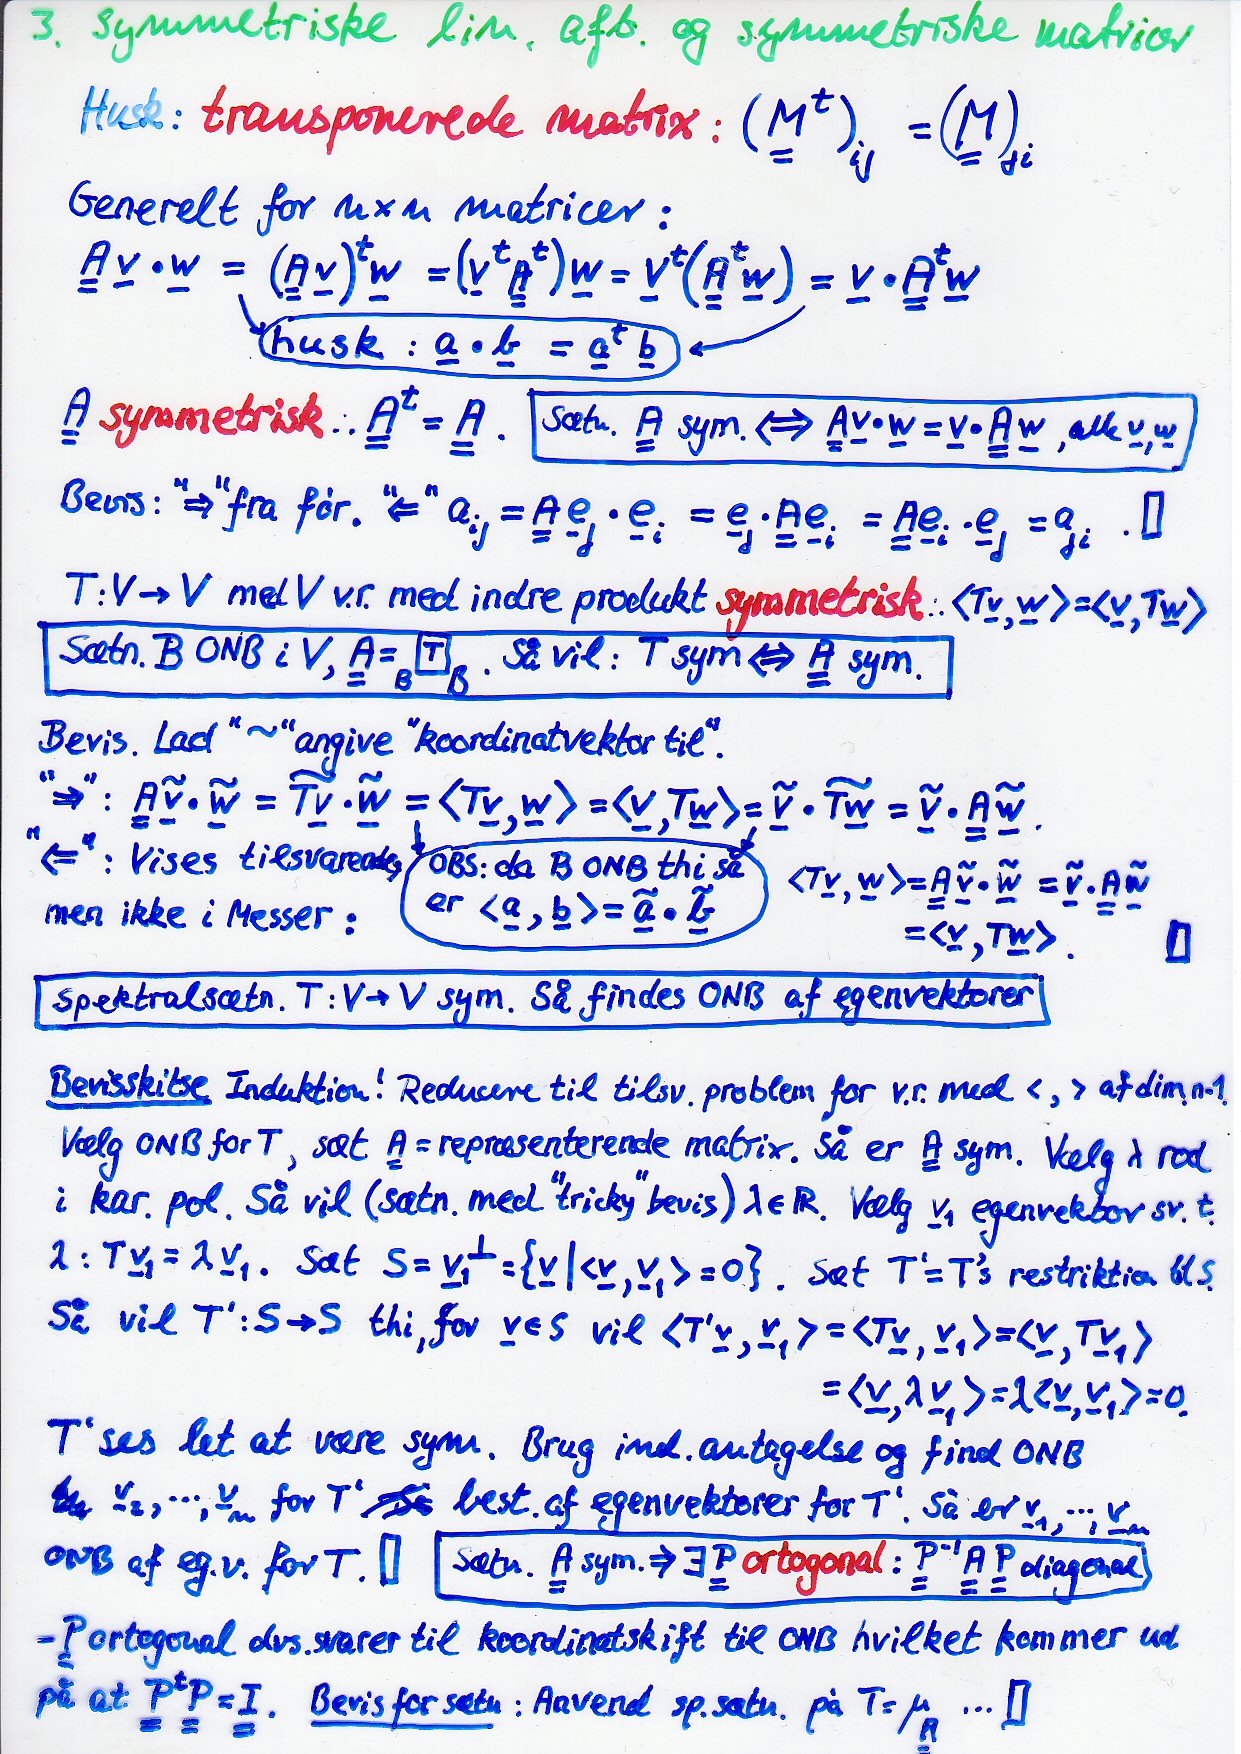 3. Symmetriske lin. afb. og symmetriske matricer
Husk: transponerede matrix: (M^t)_ij = (M)_ji
Generelt for n×n matricer:
A v • w = (A v)^t w = (v^t A^t) w = v^t (A^t w) = v • A^t w
husk : a • b = a^t b
A symmetrisk ∴ A^t = A. Sætn. A sym. ⇔ A v • w = v • A w, alle v, w
Bevis: "⇒" fra før. "⇐" a_ij = A e_j • e_i = e_j • A e_i = A e_i • e_j = a_ji . ▯
T: V → V med V v.r. med indre produkt symmetrisk ∴ <Tv, w> = <v, Tw>
Sætn. B ONB i V, A = _B[T]_B . Så vil : T sym ⇔ A sym.
Bevis. Lad "~" angive "koordinatvektor til".
"⇒": A ṽ • w̃ = T̃v • w̃ = <Tv, w> = <v, Tw> = ṽ • T̃w = ṽ • A w̃ .
"⇐": Vises tilsvarende, OBS: da B ONB thi så <Tv, w> = A ṽ • w̃ = ṽ • A w̃
men ikke i Messer : er <a, b> = ã • b̃ = <v, Tw> . ▯
Spektralsætn. T: V → V sym. Så findes ONB af egenvektorer
Bevisskitse Induktion! Reducere til tilsv. problem for v.r. med < , > af dim. n-1.
Vælg ONB for T, sæt A = repræsenterende matrix. Så er A sym. Vælg λ rod
i kar. pol. Så vil (sætn. med "tricky" bevis) λ ∈ R. Vælg v_1 egenvektor sv. t.
λ : T v_1 = λ v_1. Sæt S = v_1^⊥ = {v | <v, v_1> = 0}. Sæt T' = T's restriktion til S.
Så vil T': S → S thi, for v ∈ S vil <T'v, v_1> = <Tv, v_1> = <v, Tv_1>
= <v, λ v_1> = λ <v, v_1> = 0.
T' ses let at være sym. Brug ind. antagelse og find ONB
v_2, ..., v_n for T' best. af egenvektorer for T'. Så er v_1, ..., v_n
ONB af eg.v. for T. ▯ Sætn. A sym. ⇒ ∃ P ortogonal : P^-1 A P diagonal
- P ortogonal dvs. svarer til koordinatskift til ONB hvilket kommer ud
på at P^t P = I. Bevis for sætn : Anvend sp.sætn. på T = μ_A ... ▯